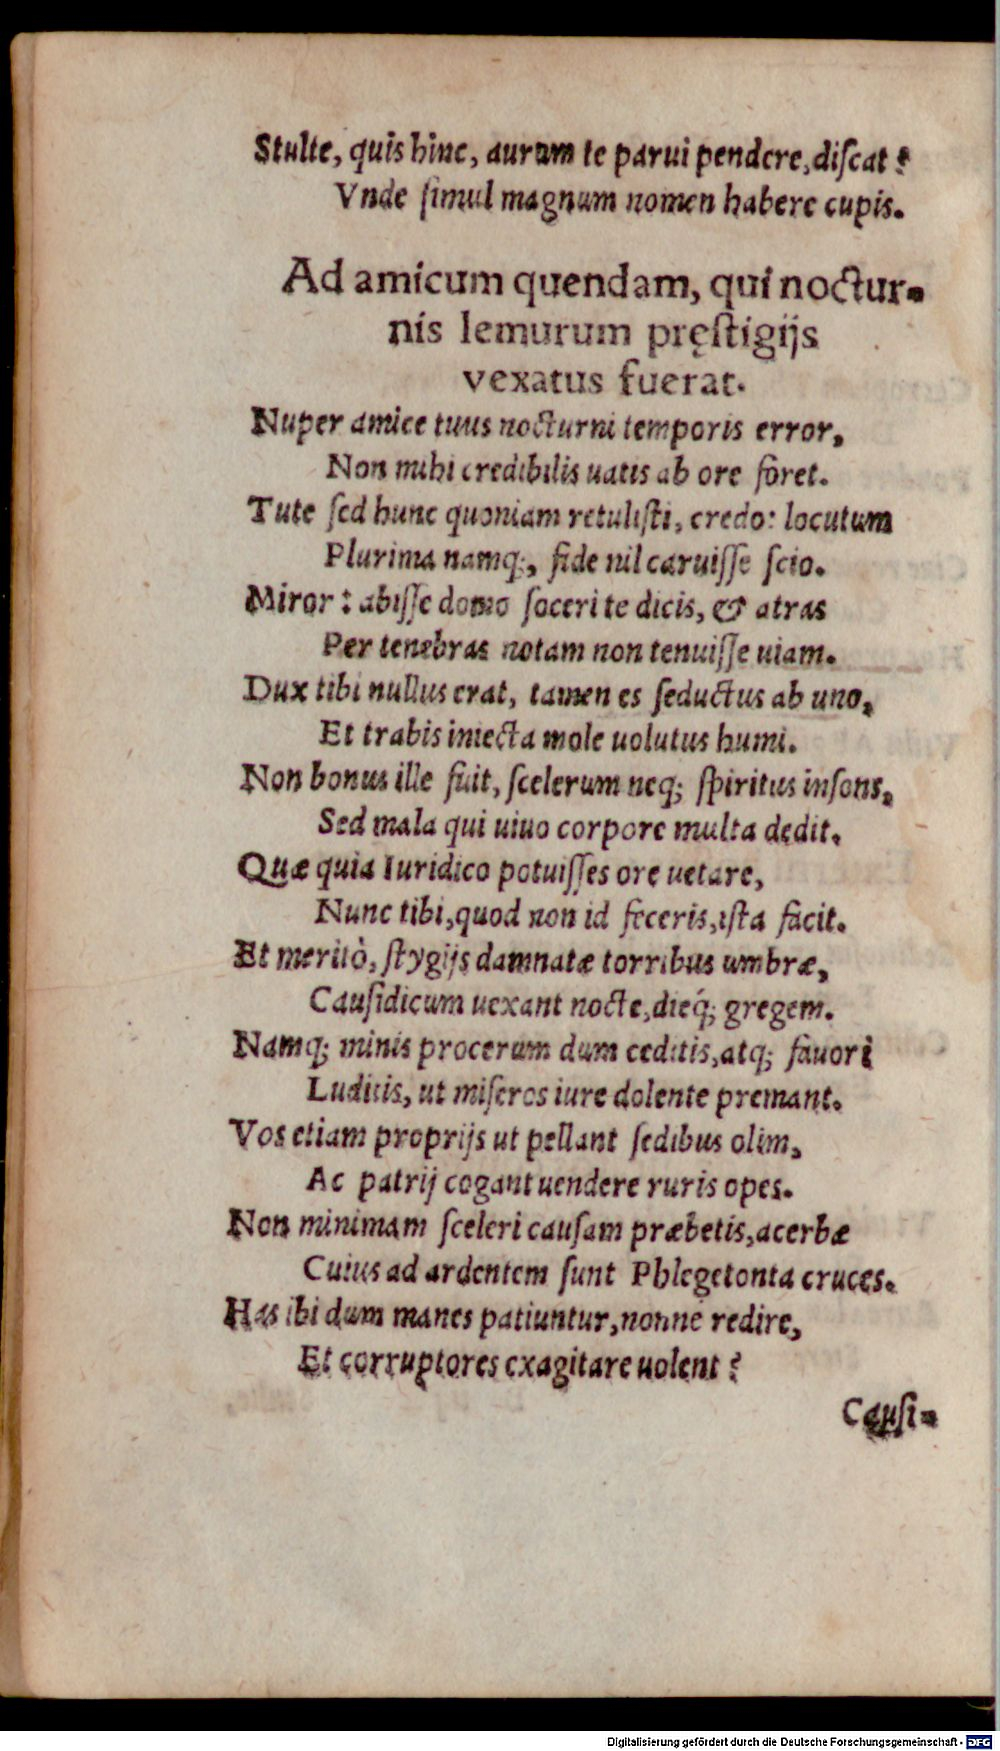 Stulte, quis hinc, aurum te parui pendere, discat?
Vnde simul magnum nomen habere cupis.
Ad amicum quendam, qui noctur-
nis lemurum pręstigijs
vexatus fuerat.
Nuper amice tuus nocturni temporis error,
Non mihi credibilis uatis ab ore foret.
Tute sed hunc quoniam retulisti, credo: locutum
Plurima namq;, fide nil caruisse scio.
Miror: abisse domo soceri te dicis, & atras
Per tenebras notam non tenuisse uiam.
Dux tibi nullus erat, tamen es seductus ab uno,
Et trabis iniecta mole uolutus humi.
Non bonus ille fuit, scelerum neq; spiritus insons,
Sed mala qui uiuo corpore multa dedit.
Quæ quia Iuridico potuisses ore uetare,
Nunc tibi, quod non id feceris, ista facit.
Et meritò, stygijs damnatæ torribus umbræ,
Causidicum uexant nocte, dieq́; gregem.
Namq; minis procerum dum ceditis, atq; fauori
Luditis, ut miseros iure dolente premant.
Vos etiam proprijs ut pellant sedibus olim,
Ac patrij cogant uendere ruris opes.
Non minimam sceleri causam præbetis, acerbæ
Cuius ad ardentem sunt Phlegetonta cruces.
Has ibi dum manes patiuntur, nonne redire,
Et corruptores exagitare uolent?
Causi-
Digitalisierung gefördert durch die Deutsche Forschungsgemeinschaft - DFG